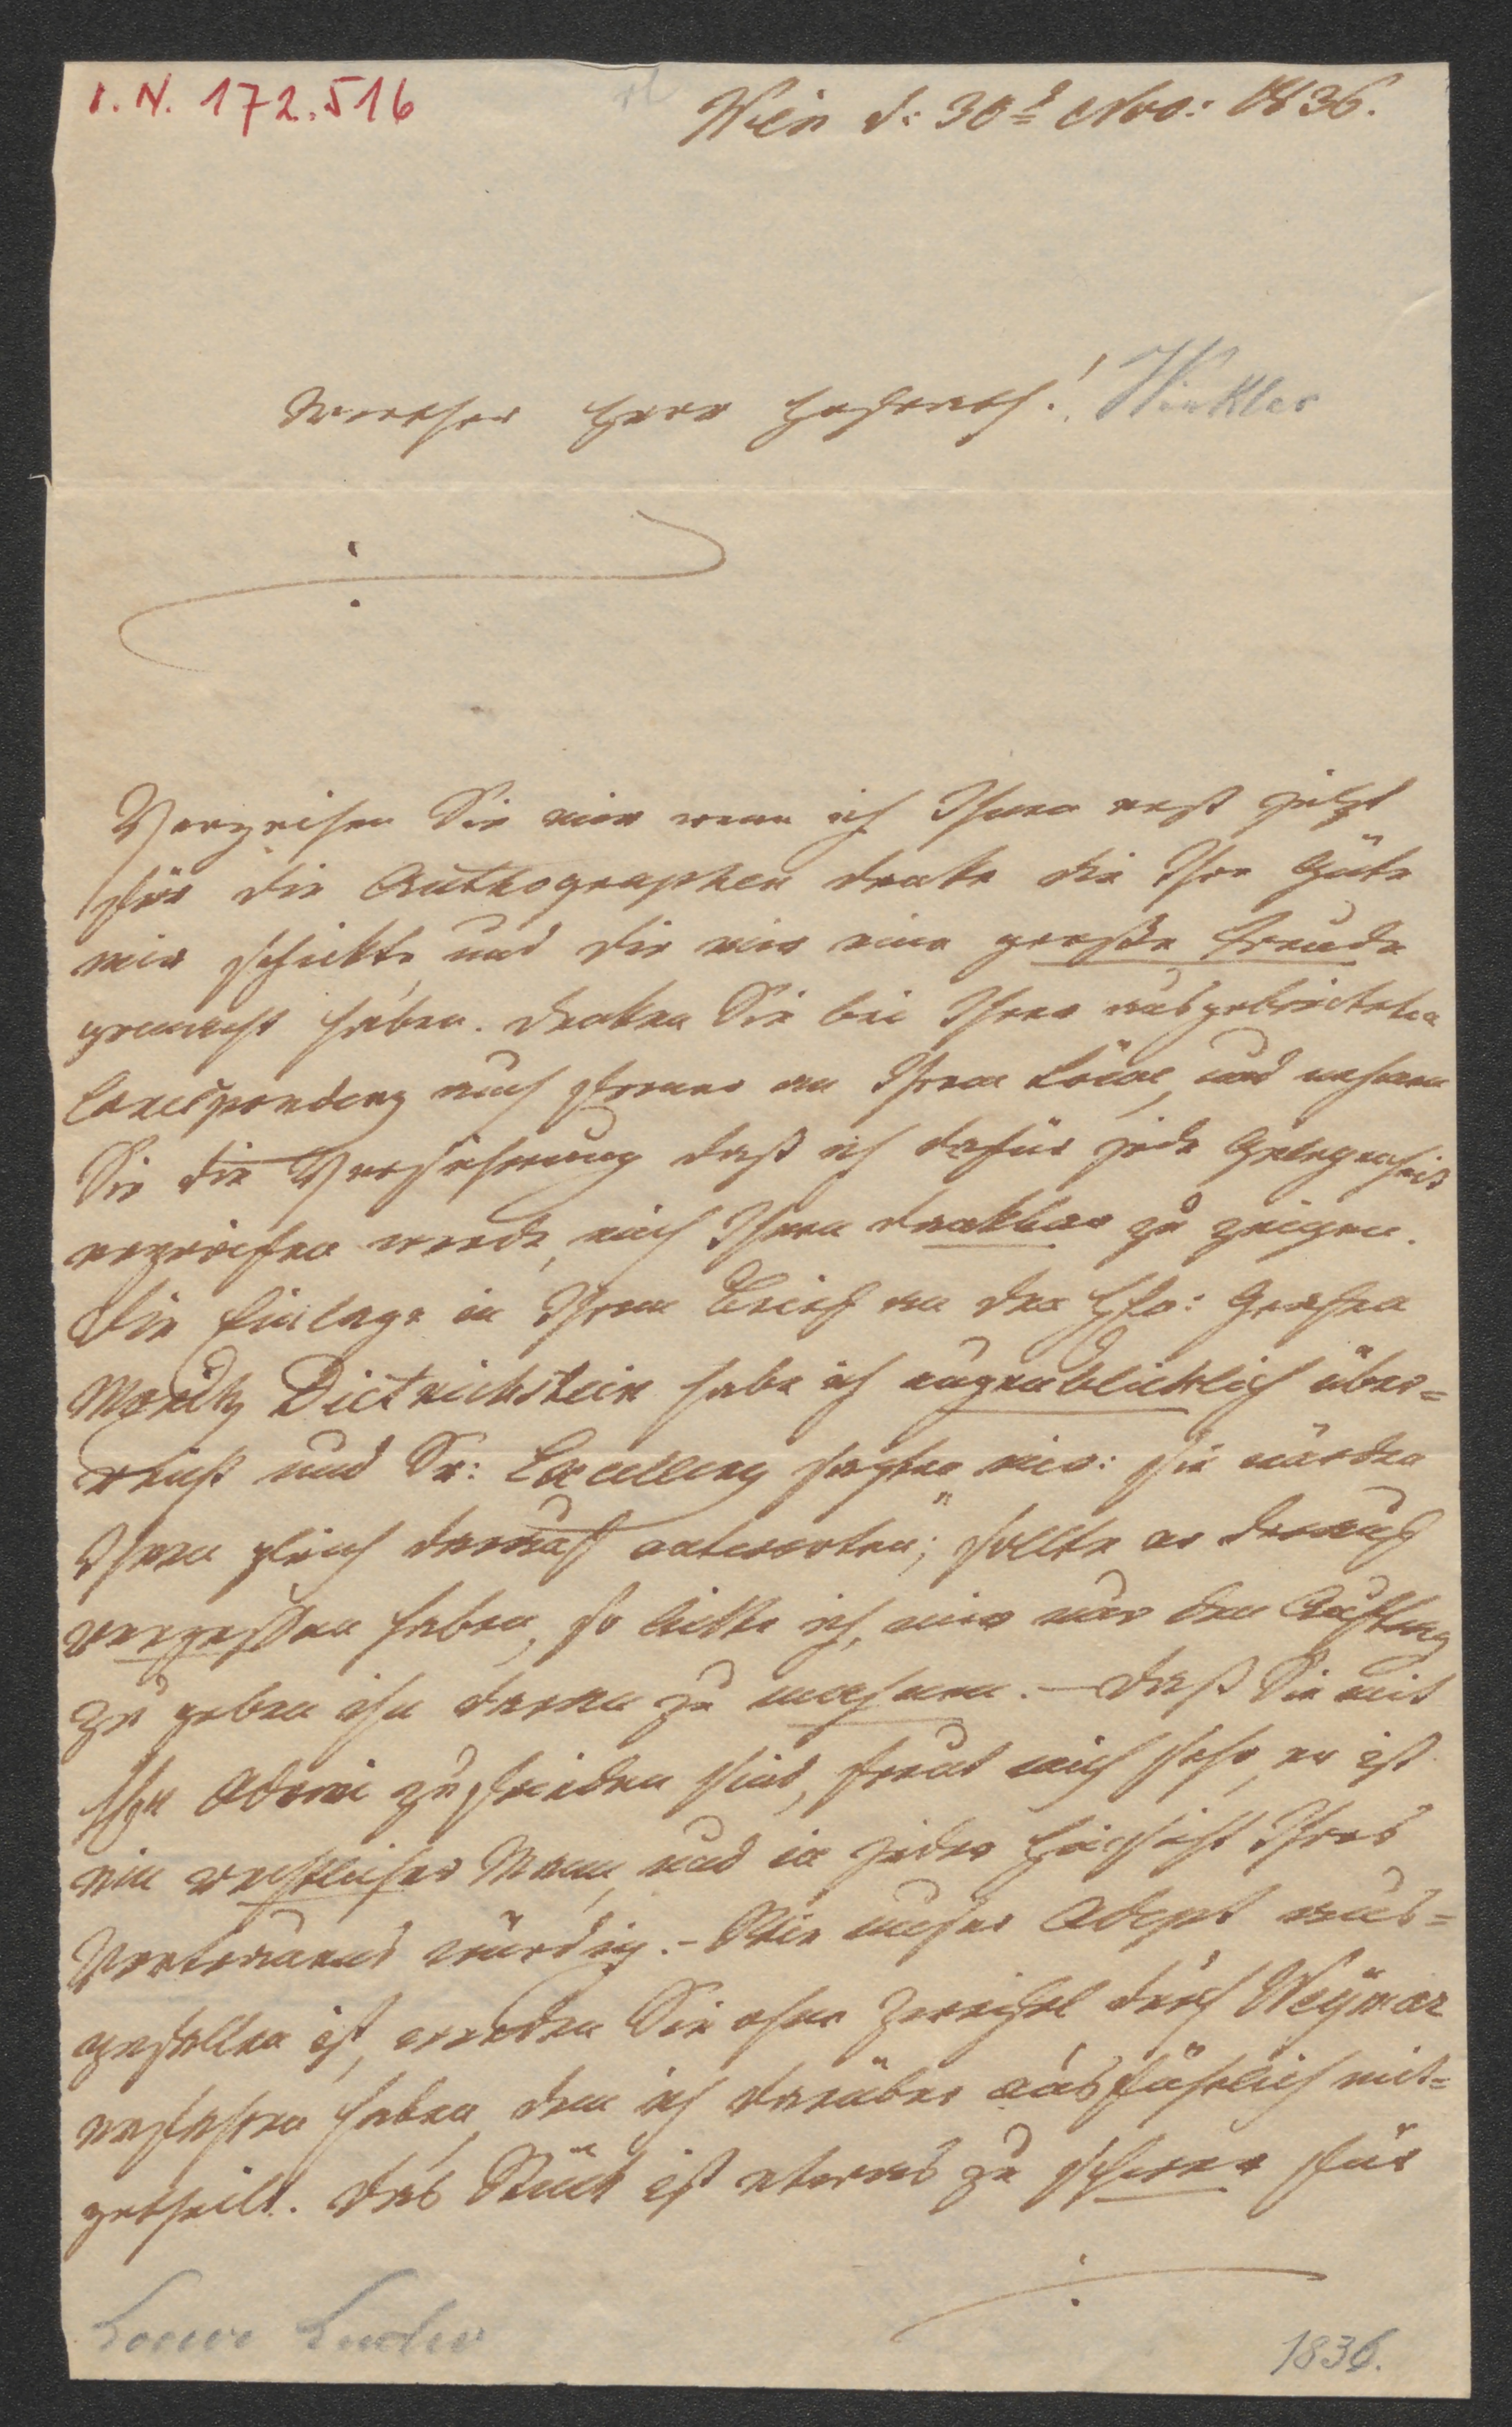 I. N. 172.516
Wien d: 30t Nov: 1836.
Werther Herr Hofrath! Winkler
Verzeihen Sie mir wenn ich Ihnen erst jetzt
für die Authographen danke die Ihre Güte
mir schickte, und die mir eine große Freude
gemacht haben. Denken Sie bei Ihrer ausgebreiteten
Correspondenz auch ferner an Ihren Löwe, und nehmen
Sie die Versicherung daß ich dafür jede Gelegenheit
ergreifen werde, mich Ihnen dankbar zu zeigen.
Die Einlage in Ihrem Brief an den Hfn: Grafen
Moritz Dietrichstein habe ich augenblicklich über=
reicht und Sr: Excellenz sagten mir: sie würden
Ihnen gleich darauf antworten; sollte er darauf
vergessen haben, so bitte ich, mir nur den Auftrag
zu geben ihn daran zu mahnen. – Daß Sie mit
Hrn Adami zufrieden sind, freut mich sehr, er ist
ein rechtlicher Mann, und in jeder Hinsicht Ihres
Vertrauens würdig. – Wie unser Adept aus=
gefallen ist, werden Sie ohne Zweifel durch Weymar
erfahren haben, dem ich darüber ausführlich mit=
getheilt. Das Stück ist etwas zu schwer für
Loewe Ludw
1836.